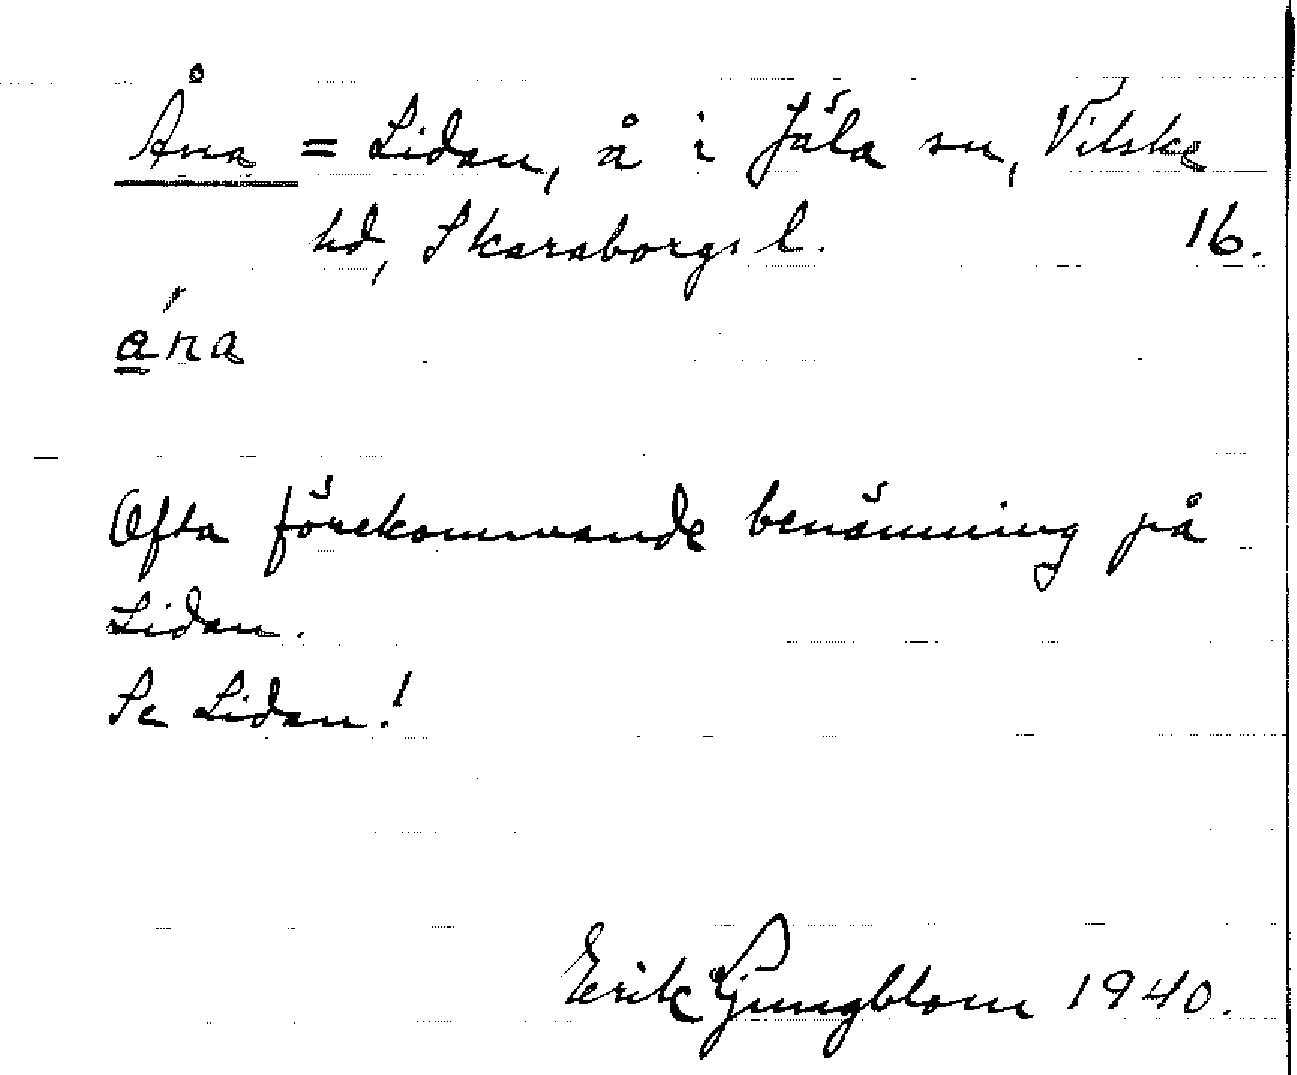 Åna = Lidan, å i Jäla sn, Vilske
hd, Skaraborgs l. 16.
á̲na
Ofta förekommande benämning på
Lidan.
Se Lidan!
Erik Ljungblom 1940.